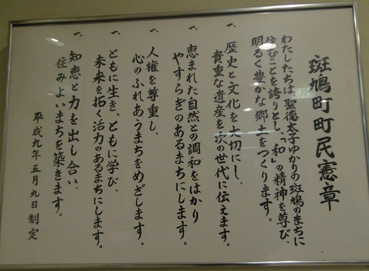 斑鳩町町民憲章
わたしたちは聖徳太子ゆかりの斑鳩のまちに
住むことを誇りとし、「和」の精神を尊び、
明るく豊かな郷土をつくります。
一、歴史と文化を大切にし、
貴重な遺産を次の世代に伝えます。
一、恵まれた自然との調和をはかり
やすらぎのあるまちにします。
一、人権を尊重し、
心のふれあうまちをめざします。
一、ともに生き、ともに学び、
未来を拓く活力のあるまちにします。
一、知恵と力を出し合い、
住みよいまちを築きます。
平成九年五月九日制定